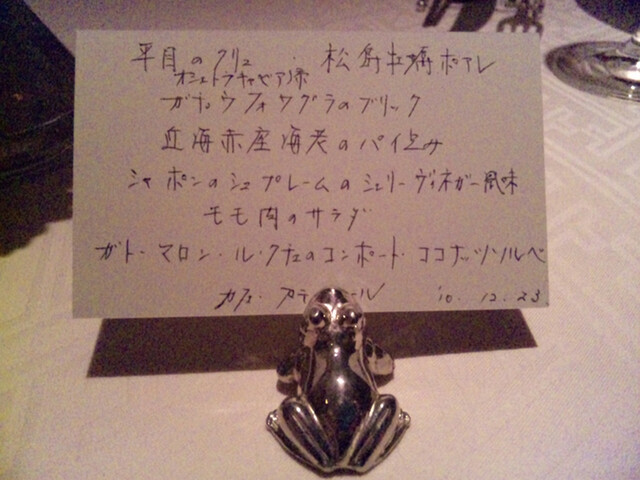 平目のクリュ . 松島牡蠣ポアレ
オシェトラキャビア添
ガナッウフォワグラのブリック
近海赤座海老のパイ包み
シャポンのシュプレームのシェリーヴィネガー風味
モモ肉のサラダ
ガトー・マロン・ル・クチェのコンポート・ココナッツソルベ
カフェ・
'10. 12. 23